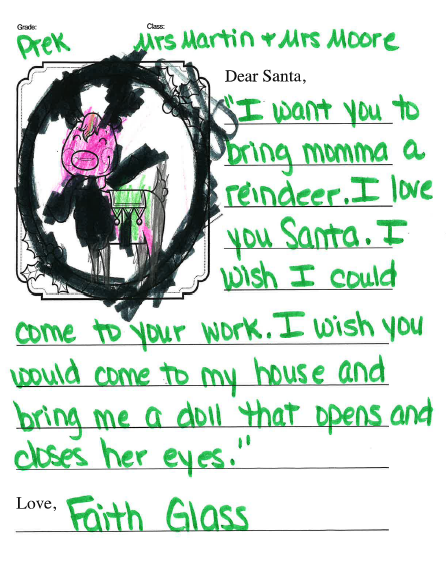 Grade: Class:
Prek Mrs Martin + Mrs Moore
Dear Santa,
"I want you to
bring momma a
reindeer. I love
you Santa. I
wish I could
come to your work. I wish you
would come to my house and
bring me a doll that opens and
closes her eyes."
Love, Faith Glass